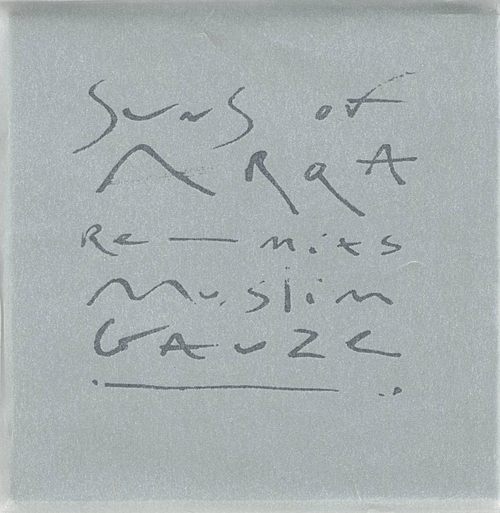 Suns of
ARqA
Re-mixs
Muslim
GAuZE